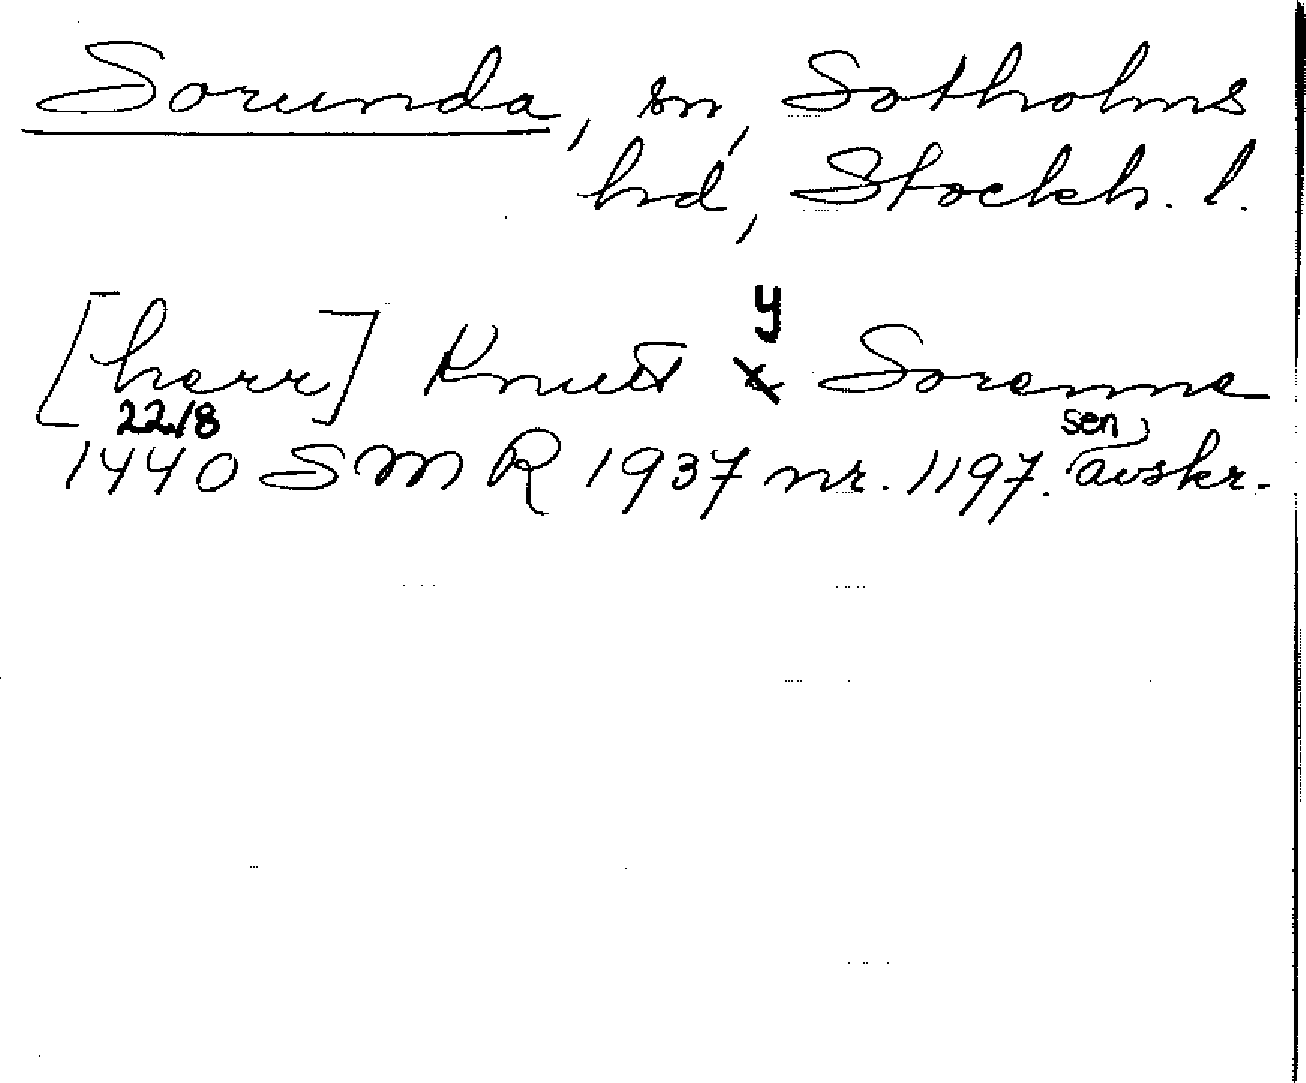 Sorunda, sn, Sotholms
hd, Stockh. l.
[herr] Knut y Soranna
22/8
sen
1440 SMR 1937 nr. 1197. avskr.